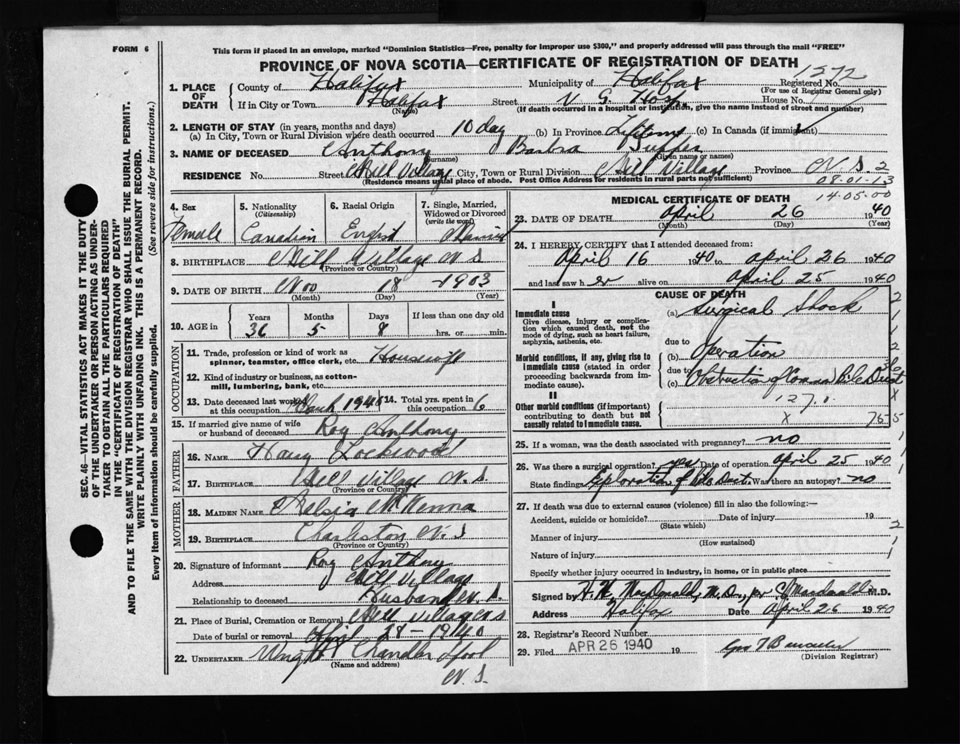 FORM 6
This form if placed in an envelope, marked "Dominion Statistics—Free, penalty for improper use $300," and properly addressed will pass through the mail "FREE"
PROVINCE OF NOVA SCOTIA—CERTIFICATE OF REGISTRATION OF DEATH
1572
SEC. 46—VITAL STATISTICS ACT MAKES IT THE DUTY
OF THE UNDERTAKER OR PERSON ACTING AS UNDER-
TAKER TO OBTAIN ALL THE PARTICULARS REQUIRED
IN THE "CERTIFICATE OF REGISTRATION OF DEATH"
AND TO FILE THE SAME WITH THE DIVISION REGISTRAR WHO SHALL ISSUE THE BURIAL PERMIT.
WRITE PLAINLY WITH UNFADING INK. THIS IS A PERMANENT RECORD.
Every item of information should be carefully supplied. (See reverse side for instructions.)
1. PLACE OF DEATH County of Halifax Municipality of Halifax Registered No.
(For use of Registrar General only)
If in City or Town Halifax Street V. G. Hosp House No.
(Name) (If death occurred in a hospital or institution, give the name instead of street and number)
2. LENGTH OF STAY (in years, months and days)
(a) In City, Town or Rural Division where death occurred 10 day (b) In Province Lifetime (c) In Canada (if immigrant)
3. NAME OF DECEASED Anthony Tupper
(Surname) (Given name or names)
RESIDENCE No. Street Mill Village City, Town or Rural Division Mill Village Province N.S. 2
(Residence means usual place of abode. Post Office Address for residents in rural parts not sufficient)
08-01-13
14-05-00
4. Sex 5. Nationality (Citizenship) 6. Racial Origin 7. Single, Married, Widowed or Divorced (write the word)
Female Canadian English Married
8. BIRTHPLACE Mill Village N S
(Province or Country)
9. DATE OF BIRTH Nov 18 - 1903
(Month) (Day) (Year)
10. AGE in Years Months Days If less than one day old
36 5 8 hrs. or min.
OCCUPATION
11. Trade, profession or kind of work as spinner, teamster, office clerk, etc. Housewife
12. Kind of industry or business, as cotton-mill, lumbering, bank, etc.
13. Date deceased last worked at this occupation March 1940 14. Total yrs. spent in this occupation 6
15. If married give name of wife or husband of deceased Roy Anthony
FATHER
16. Name Harry Lockwood
17. Birthplace Mill Village N. S
(Province or Country)
MOTHER
18. MAIDEN NAME McKenna
19. BIRTHPLACE Charleston N. S
(Province or Country)
20. Signature of informant Roy Anthony
Address Mill Village
Relationship to deceased Husband N. S.
21. Place of Burial, Cremation or Removal Mill Village N S
Date of burial or removal April 28 - 1940
22. UNDERTAKER Wright Chandler
(Name and address)
N. S.
MEDICAL CERTIFICATE OF DEATH
23. DATE OF DEATH April 26 1940
(Month) (Day) (Year)
24. I HEREBY CERTIFY that I attended deceased from:
April 16 1940 to April 26 1940
and last saw her alive on April 25 1940
CAUSE OF DEATH
I
Immediate cause
Give disease, injury or complication which caused death, not the mode of dying, such as heart failure, asphyxia, asthenia, etc.
(a) Surgical Shock
due to
Morbid conditions, if any, giving rise to immediate cause (stated in order proceeding backwards from immediate cause).
(b) Operation
due to
(c) Obstruction of Common Bile Duct
127.1
II
Other morbid conditions (if important) contributing to death but not causally related to immediate cause.
25. If a woman, was the death associated with pregnancy? no
26. Was there a surgical operation? yes Date of operation April 25 1940
State findings Exploration of Bile Duct. Was there an autopsy? no
27. If death was due to external causes (violence) fill in also the following:—
Accident, suicide or homicide? Date of injury 19
(State which)
Manner of injury
(How sustained)
Nature of injury
Specify whether injury occurred in industry, in home, or in public place
Signed by H. K. MacDonald, M. D., per Macdonald M.D.
Address Halifax Date April 26 1940
28. Registrar's Record Number
29. Filed APR 26 1940 19
(Division Registrar)